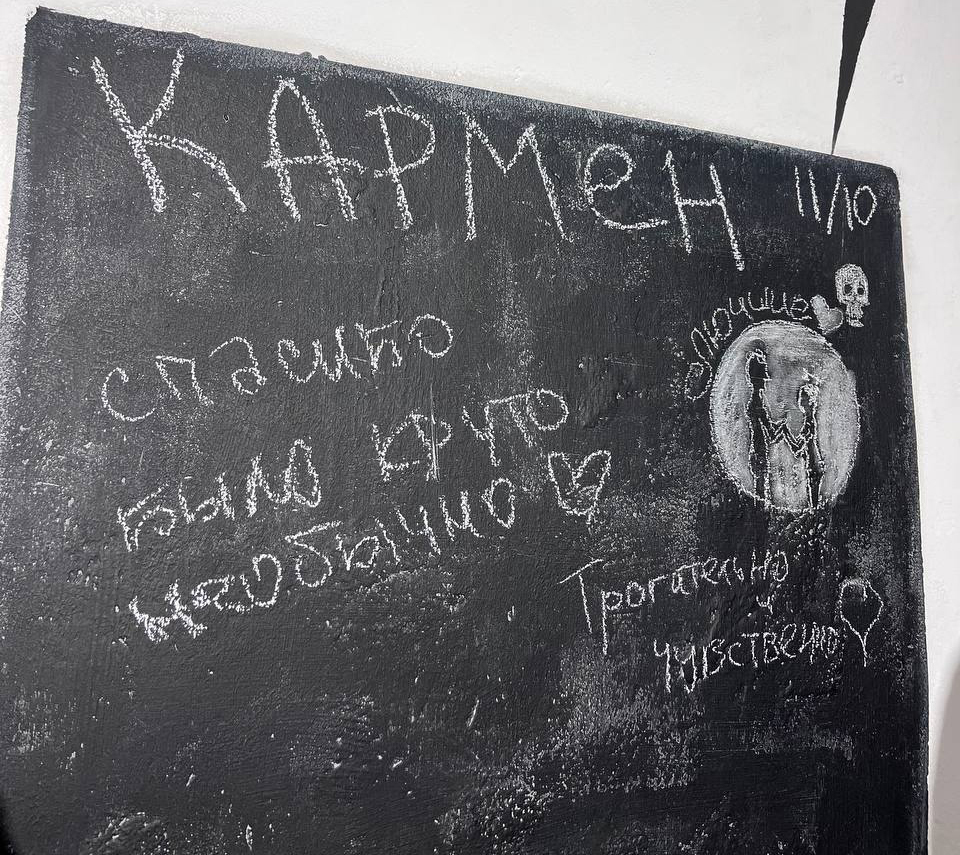 КАРМеН 11/10
спасибо
было круто
необычно
лючшие
Трогательно
и
чувственно